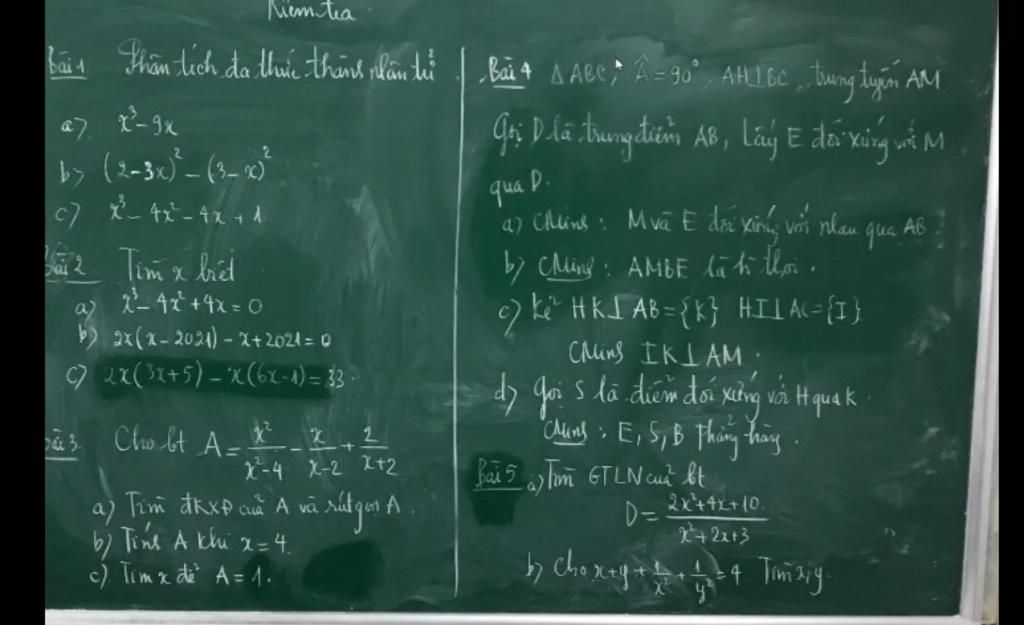 Kiểm tra
Bài 1 Phân tích đa thức thành nhân tử
a) x³ - 9x
b) (2-3x)² - (3-x)²
c) x³ - 4x² - 4x + 1
Bài 2 Tìm x biết
a) x³ - 4x² + 4x = 0
b) 2x(x - 2021) - x + 2021 = 0
c) 2x(3x+5) - x(6x-1) = 33
Bài 3 Cho bt A = x²/(x²-4) - x/(x-2) + 2/(x+2)
a) Tìm ĐKXĐ của A và rút gọn A.
b) Tính A khi x = 4.
c) Tìm x để A = 1.
Bài 4 ΔABC, Â = 90°, AH⊥BC, trung tuyến AM
Gọi D là trung điểm AB, Lấy E đối xứng với M
qua D.
a) CMinh: M và E đối xứng với nhau qua AB.
b) CMinh: AMBE là h thoi.
c) Kẻ HK⊥AB = {K} HI⊥AC = {I}
CMinh IK⊥AM.
d) Gọi S là điểm đối xứng với H qua K.
CMinh: E, S, B thẳng hàng.
Bài 5 a) Tìm GTLN của bt
D = (2x²+4x+10)/(x²+2x+3)
b) Cho x+y + 1/x² + 1/y² = 4 Tìm x, y.